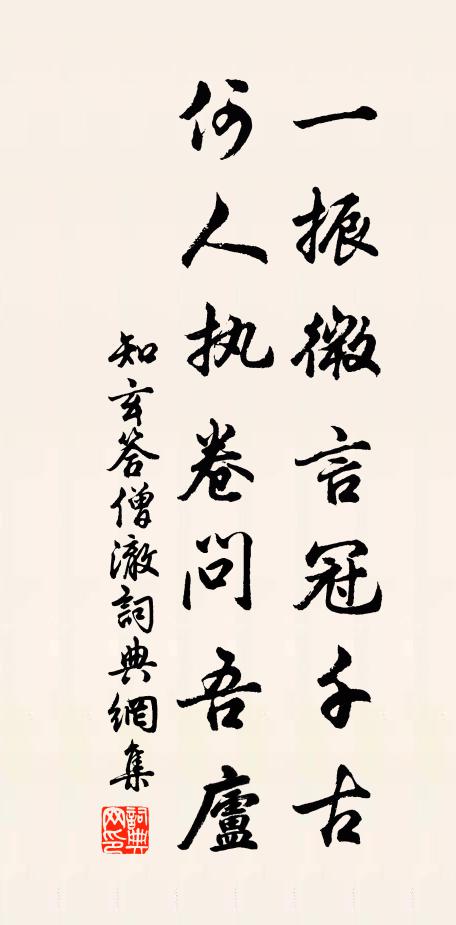 一振微言冠千古
何人执卷問吾廬
知玄答僧澈詞典網集
詞典网印